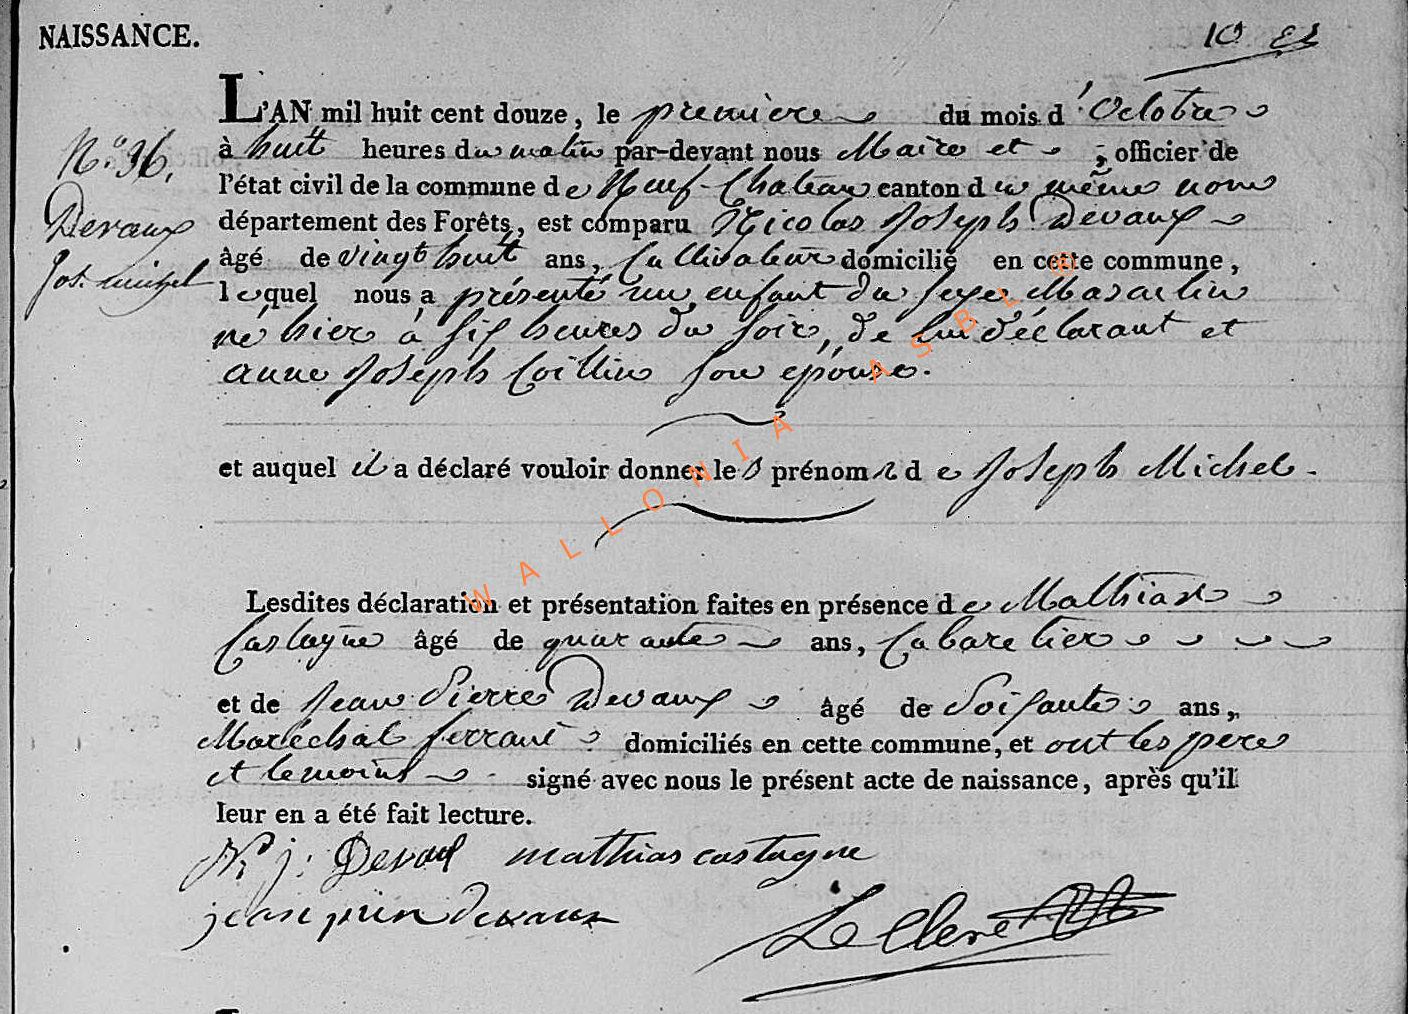 NAISSANCE.
10
L'AN mil huit cent douze, le première du mois d'Octobre
à huit heures du matin par-devant nous Maire et , officier de
N.o 36.
l'état civil de la commune de Neuf-Chateau canton du même nom
Devaux
département des Forêts, est comparu Nicolas Joseph Devaux
âgé de vingt huit ans, Cultivateur domicilié en cette commune,
Jos. michel
lequel nous a présenté un enfant du sexe Masculin
né hier à six heures du soir, de lui déclarant et
anne Joseph Collin son épouse.
et auquel il a déclaré vouloir donner les prénoms de Joseph Michel.
Lesdites déclaration et présentation faites en présence de Mathias
Castagne âgé de quarante ans, Cabaretier
et de Jean Pierre Devaux âgé de Soixante ans,
Maréchal ferrant domiciliés en cette commune, et ont les pere
et temoins signé avec nous le présent acte de naissance, après qu'il
leur en a été fait lecture.
N. j: Devaux mathias castagne
jean devaux
LeClerc
WALLONIA ASBL ©